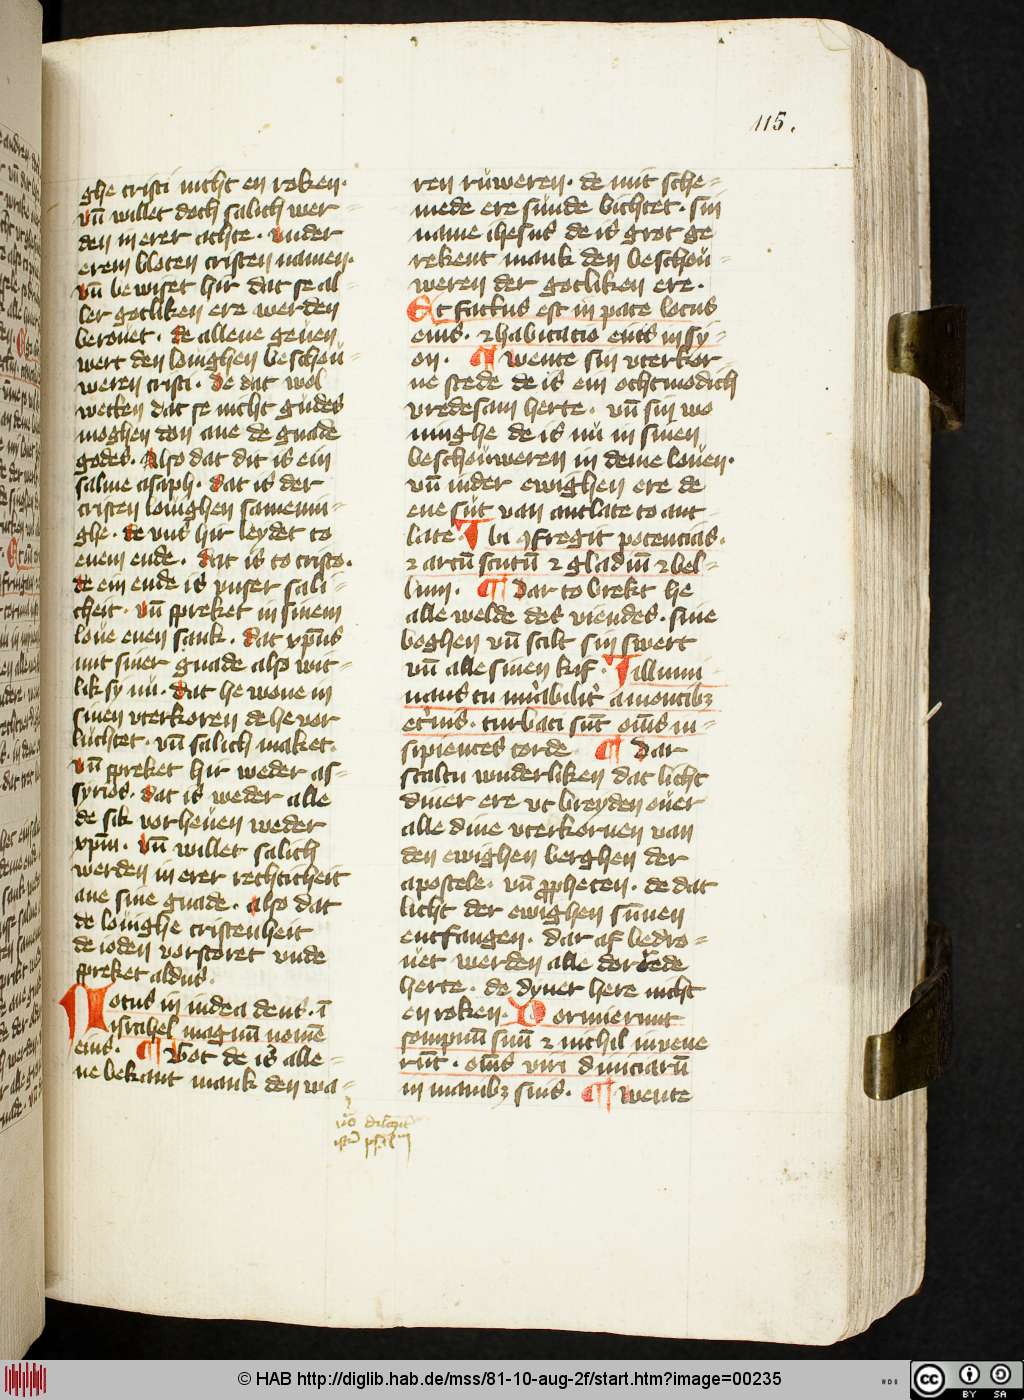 115.
ghe cristi nicht en roken·
vn̄ willet doch salich wer-
den in erer achte· vnder
erem bloten cristen namen·
vn̄ bewiset hir dat se al-
ler gotliken ere werden
berouet· de allene geuen
wert den louighen beschou-
weren cristi· De dat wol
wetten dat se nicht gudes
moghen don ane de gnade
godes· Also dat dit is ein
salme asaph· dat is der
cristen louighen samenni-
ghe· de vns hir leydet to
enem ende· dat is to cristo·
de ein ende is vnser sali-
cheit· vn̄ spreket in sinem
loue enen sank· dat xp̄ns
mit siner gnade also wit-
lik sy nu· dat he wone in
sinen vterkoren de he vor
luchtet· vn̄ salich maket·
vn̄ spreket hir weder as-
syrios· dat is weder alle
de sik vorheuen weder
xpm̄· vn̄ willet salich
werden in erer rechticheit
ane sine gnade· also dat
de louighe cristenheit
de ioden vorstoret vnde
spreket aldus·
Notus in iudea deus· ī
israhel magnū nomē
eius· ¶ Got de is alle-
ne bekant mank den wa-
ren ruweren· de mit sche-
mede ere sunde bichtet· sin
name ihesus de is grot ge
rekent mank den beschou-
weren der gotliken ere·
Et factus est in pace locus
eius· ⁊ habitatio eius in sy-
on· ¶ wente sin vterkor-
ne stede de is ein othmodich
vredesam herte· vn̄ sin wo
ninghe de is nu in sinen
beschouweren in deme louen·
vn̄ in der ewighen ere de
ene sut van antlate to ant-
late· Ibi ꝯfregit potencias·
⁊ arcū scutū ⁊ gladiū ⁊ bel-
lum· ¶ Dar to brekt he
alle welde des viendes· sine
boghen vn̄ scilt sin swert
vn̄ alle sinen kif· Illumi
nans tu mirabilit̾ a montibꝫ
et̾nis· turbati sūt om̄s in-
sipientes corde ¶ Dar
scaltu wnderliken dat licht
diner ere vt breyden ouer
alle dine vterkornen van
den ewighen berghen der
apostele· vn̄ ꝓpheten· de dat
licht der ewighen sunnen
entfangen· dar af bedro-
uet werden alle dorrede
herte· de dyner here nicht
en roken· Dormierunt
sompnū suū ⁊ nichil inuene
rūt· om̄s viri diuiciarū
in manibꝫ suis· ¶ wente
© HAB http://diglib.hab.de/mss/81-10-aug-2f/start.htm?image=00235
HAB
CC BY SA